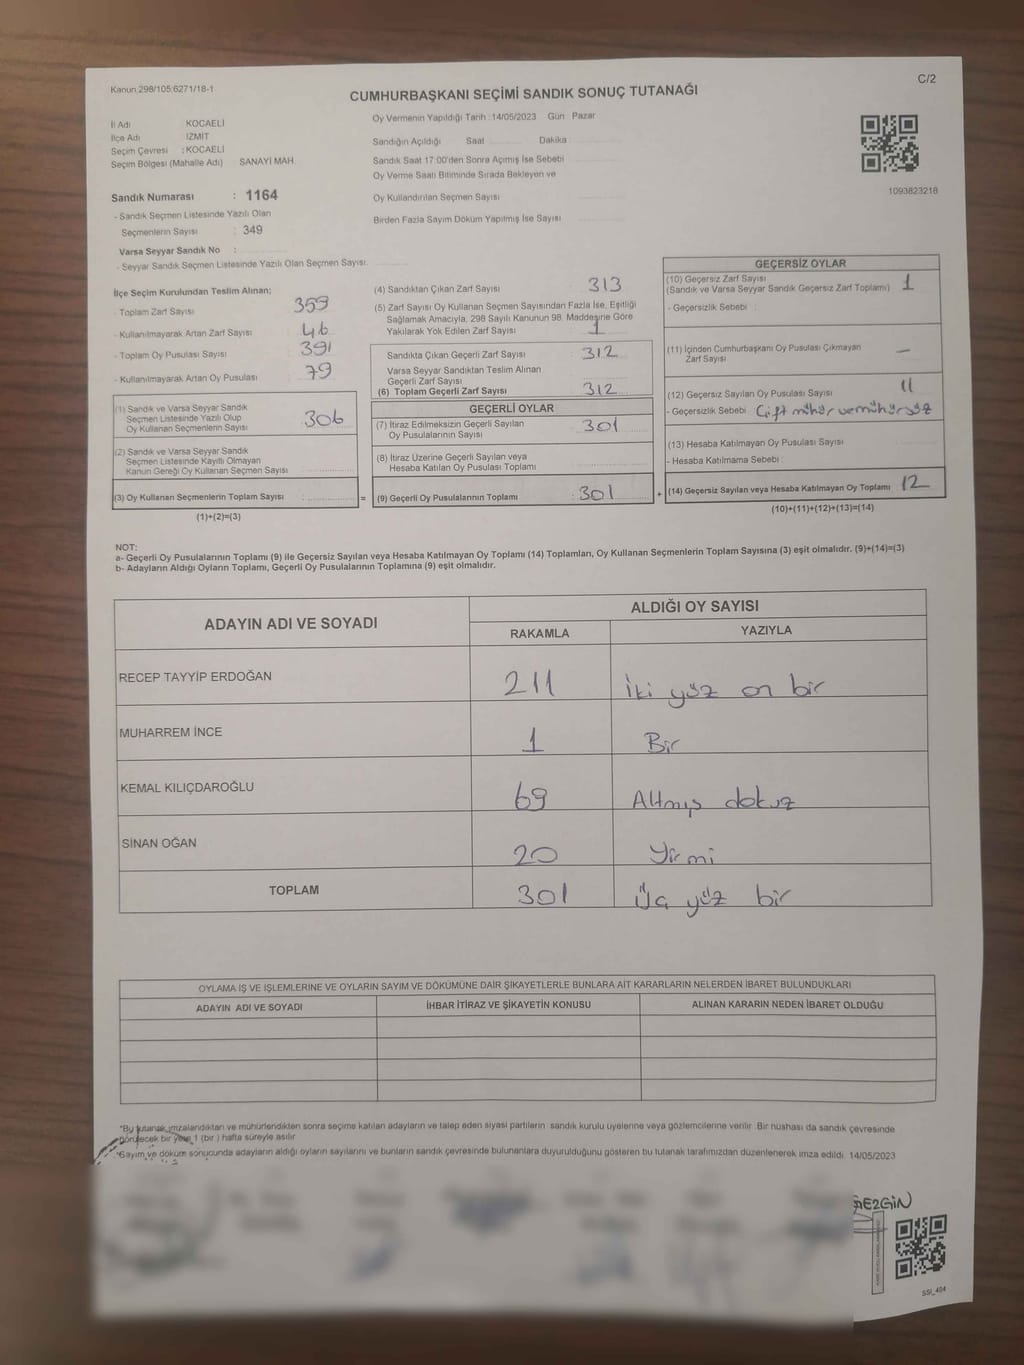 Kanun 298/105:6271/18-1
C/2
CUMHURBAŞKANI SEÇİMİ SANDIK SONUÇ TUTANAĞI
İl Adı KOCAELİ
İlçe Adı İZMİT
Seçim Çevresi :KOCAELİ
Seçim Bölgesi (Mahalle Adı) SANAYİ MAH.
Sandık Numarası : 1164
- Sandık Seçmen Listesinde Yazılı Olan
Seçmenlerin Sayısı : 349
Varsa Seyyar Sandık No :
- Seyyar Sandık Seçmen Listesinde Yazılı Olan Seçmen Sayısı:
Oy Vermenin Yapıldığı Tarih :14/05/2023 Gün : Pazar
Sandığın Açıldığı Saat Dakika :
Sandık Saat 17:00'den Sonra Açılmış İse Sebebi
Oy Verme Saati Bitiminde Sırada Bekleyen ve
Oy Kullandırılan Seçmen Sayısı
Birden Fazla Sayım Döküm Yapılmış İse Sayısı
1093823218
İlçe Seçim Kurulundan Teslim Alınan;
- Toplam Zarf Sayısı 359
- Kullanılmayarak Artan Zarf Sayısı 46
- Toplam Oy Pusulası Sayısı 391
- Kullanılmayarak Artan Oy Pusulası 79
(1) Sandık ve Varsa Seyyar Sandık
Seçmen Listesinde Yazılı Olup
Oy Kullanan Seçmenlerin Sayısı 306
(2) Sandık ve Varsa Seyyar Sandık
Seçmen Listesinde Kayıtlı Olmayan
Kanun Gereği Oy Kullanan Seçmen Sayısı :
(3) Oy Kullanan Seçmenlerin Toplam Sayısı :
=
(1)+(2)=(3)
(4) Sandıktan Çıkan Zarf Sayısı : 313
(5) Zarf Sayısı Oy Kullanan Seçmen Sayısından Fazla İse, Eşitliği
Sağlamak Amacıyla, 298 Sayılı Kanunun 98. Maddesine Göre
Yakılarak Yok Edilen Zarf Sayısı : 1
Sandıkta Çıkan Geçerli Zarf Sayısı : 312
Varsa Seyyar Sandıktan Teslim Alınan
Geçerli Zarf Sayısı
(6) Toplam Geçerli Zarf Sayısı : 312
GEÇERLİ OYLAR
(7) İtiraz Edilmeksizin Geçerli Sayılan
Oy Pusulalarının Sayısı : 301
(8) İtiraz Üzerine Geçerli Sayılan veya
Hesaba Katılan Oy Pusulası Toplamı
(9) Geçerli Oy Pusulalarının Toplamı : 301
+
GEÇERSİZ OYLAR
(10) Geçersiz Zarf Sayısı
(Sandık ve Varsa Seyyar Sandık Geçersiz Zarf Toplamı) : 1
- Geçersizlik Sebebi :
(11) İçinden Cumhurbaşkanı Oy Pusulası Çıkmayan
Zarf Sayısı —
(12) Geçersiz Sayılan Oy Pusulası Sayısı 11
- Geçersizlik Sebebi Çift mühür ve mühürsüz
(13) Hesaba Katılmayan Oy Pusulası Sayısı
- Hesaba Katılmama Sebebi :
(14) Geçersiz Sayılan veya Hesaba Katılmayan Oy Toplamı 12
(10)+(11)+(12)+(13)=(14)
NOT:
a- Geçerli Oy Pusulalarının Toplamı (9) ile Geçersiz Sayılan veya Hesaba Katılmayan Oy Toplamı (14) Toplamları, Oy Kullanan Seçmenlerin Toplam Sayısına (3) eşit olmalıdır. (9)+(14)=(3)
b- Adayların Aldığı Oyların Toplamı, Geçerli Oy Pusulalarının Toplamına (9) eşit olmalıdır.
ADAYIN ADI VE SOYADI
ALDIĞI OY SAYISI
RAKAMLA YAZIYLA
RECEP TAYYİP ERDOĞAN 211 İki yüz on bir
MUHARREM İNCE 1 Bir
KEMAL KILIÇDAROĞLU 69 Altmış dokuz
SİNAN OĞAN 20 Yirmi
TOPLAM 301 Üç yüz bir
OYLAMA İŞ VE İŞLEMLERİNE VE OYLARIN SAYIM VE DÖKÜMÜNE DAİR ŞİKAYETLERLE BUNLARA AİT KARARLARIN NELERDEN İBARET BULUNDUKLARI
ADAYIN ADI VE SOYADI İHBAR İTİRAZ VE ŞİKAYETİN KONUSU ALINAN KARARIN NEDEN İBARET OLDUĞU
*Bu tutanak imzalandıktan ve mühürlendikten sonra seçime katılan adayların ve talep eden siyasi partilerin sandık kurulu üyelerine veya gözlemcilerine verilir. Bir nüshası da sandık çevresinde
görülecek bir yere 1 (bir ) hafta süreyle asılır.
*Sayım ve döküm sonucunda adayların aldığı oyların sayılarını ve bunların sandık çevresinde bulunanlara duyurulduğunu gösteren bu tutanak tarafımızdan düzenlenerek imza edildi. 14/05/2023
SSİ_404